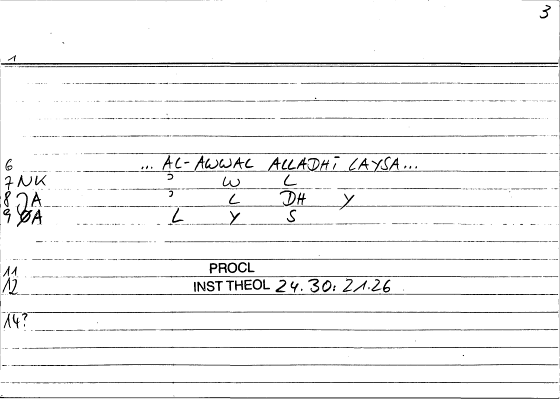 3
1
6 ... AL-AWWAL ALLADHĪ LAYSA...
7 NK ʾ W L
8 JA ʾ L DH Y
9 ØA L Y S
11 PROCL
12 INST THEOL 24.30: 21.26
14?